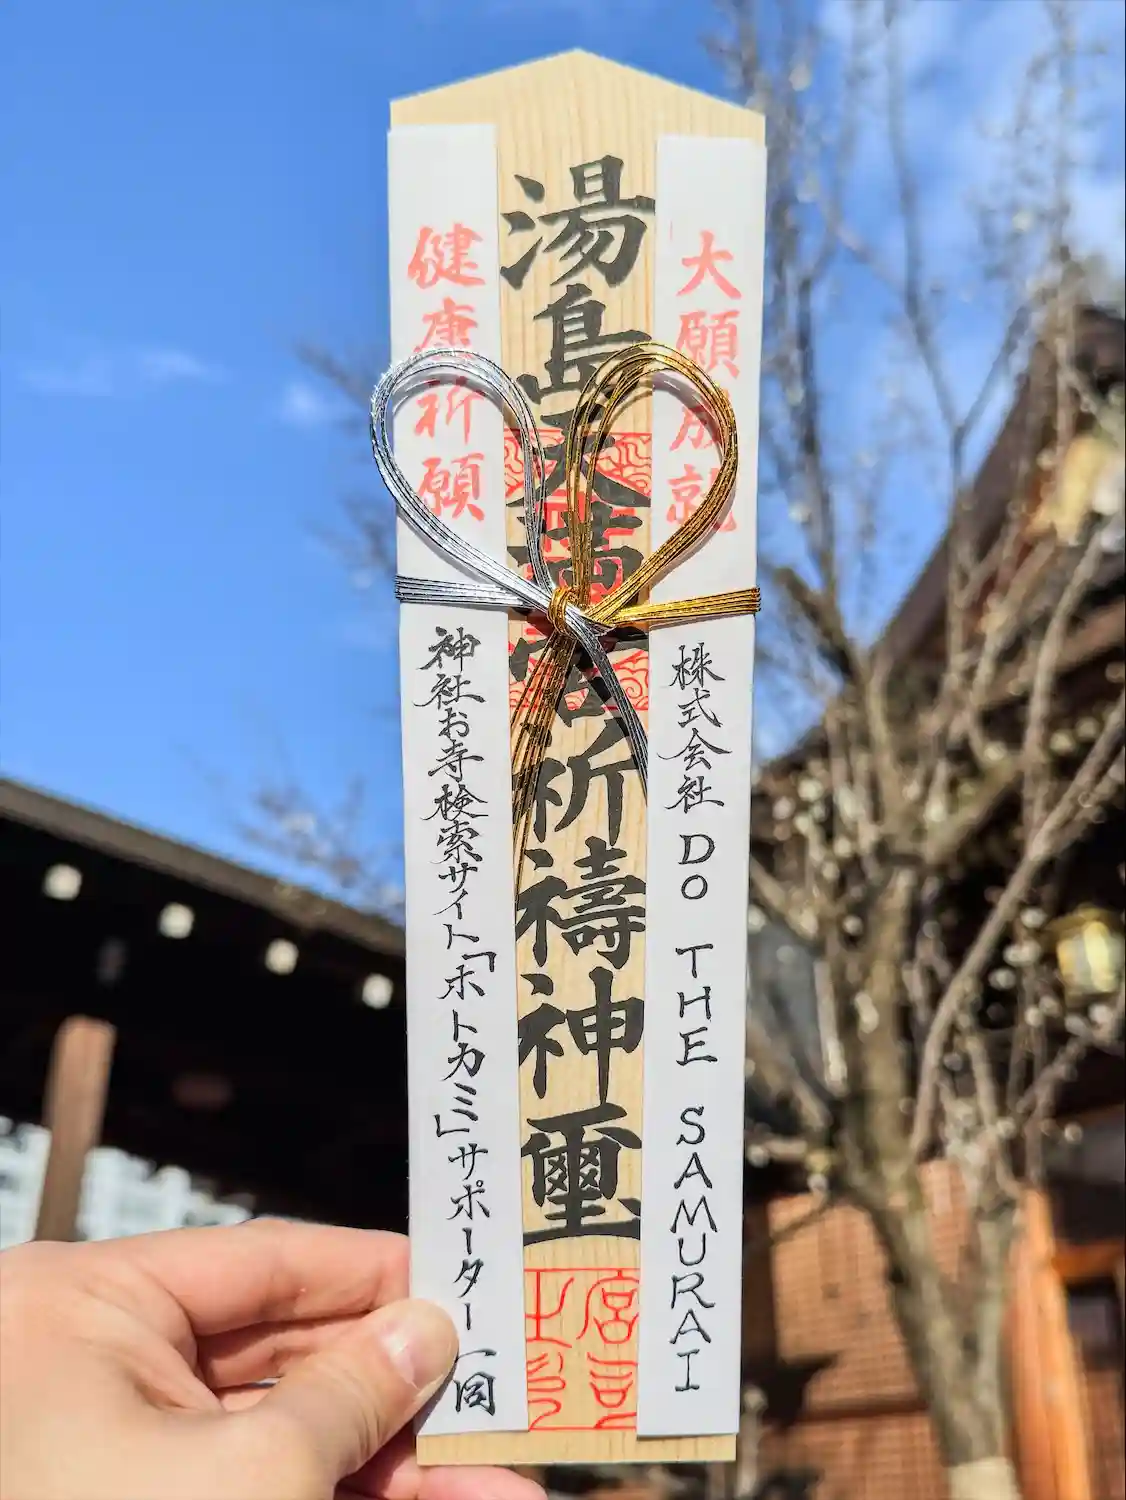 大願成就
株式会社 DO THE SAMURAI
湯島天満宮祈禱神璽
宮司之印
健康祈願
神社お寺検索サイト「ホトカミ」サポーター一同